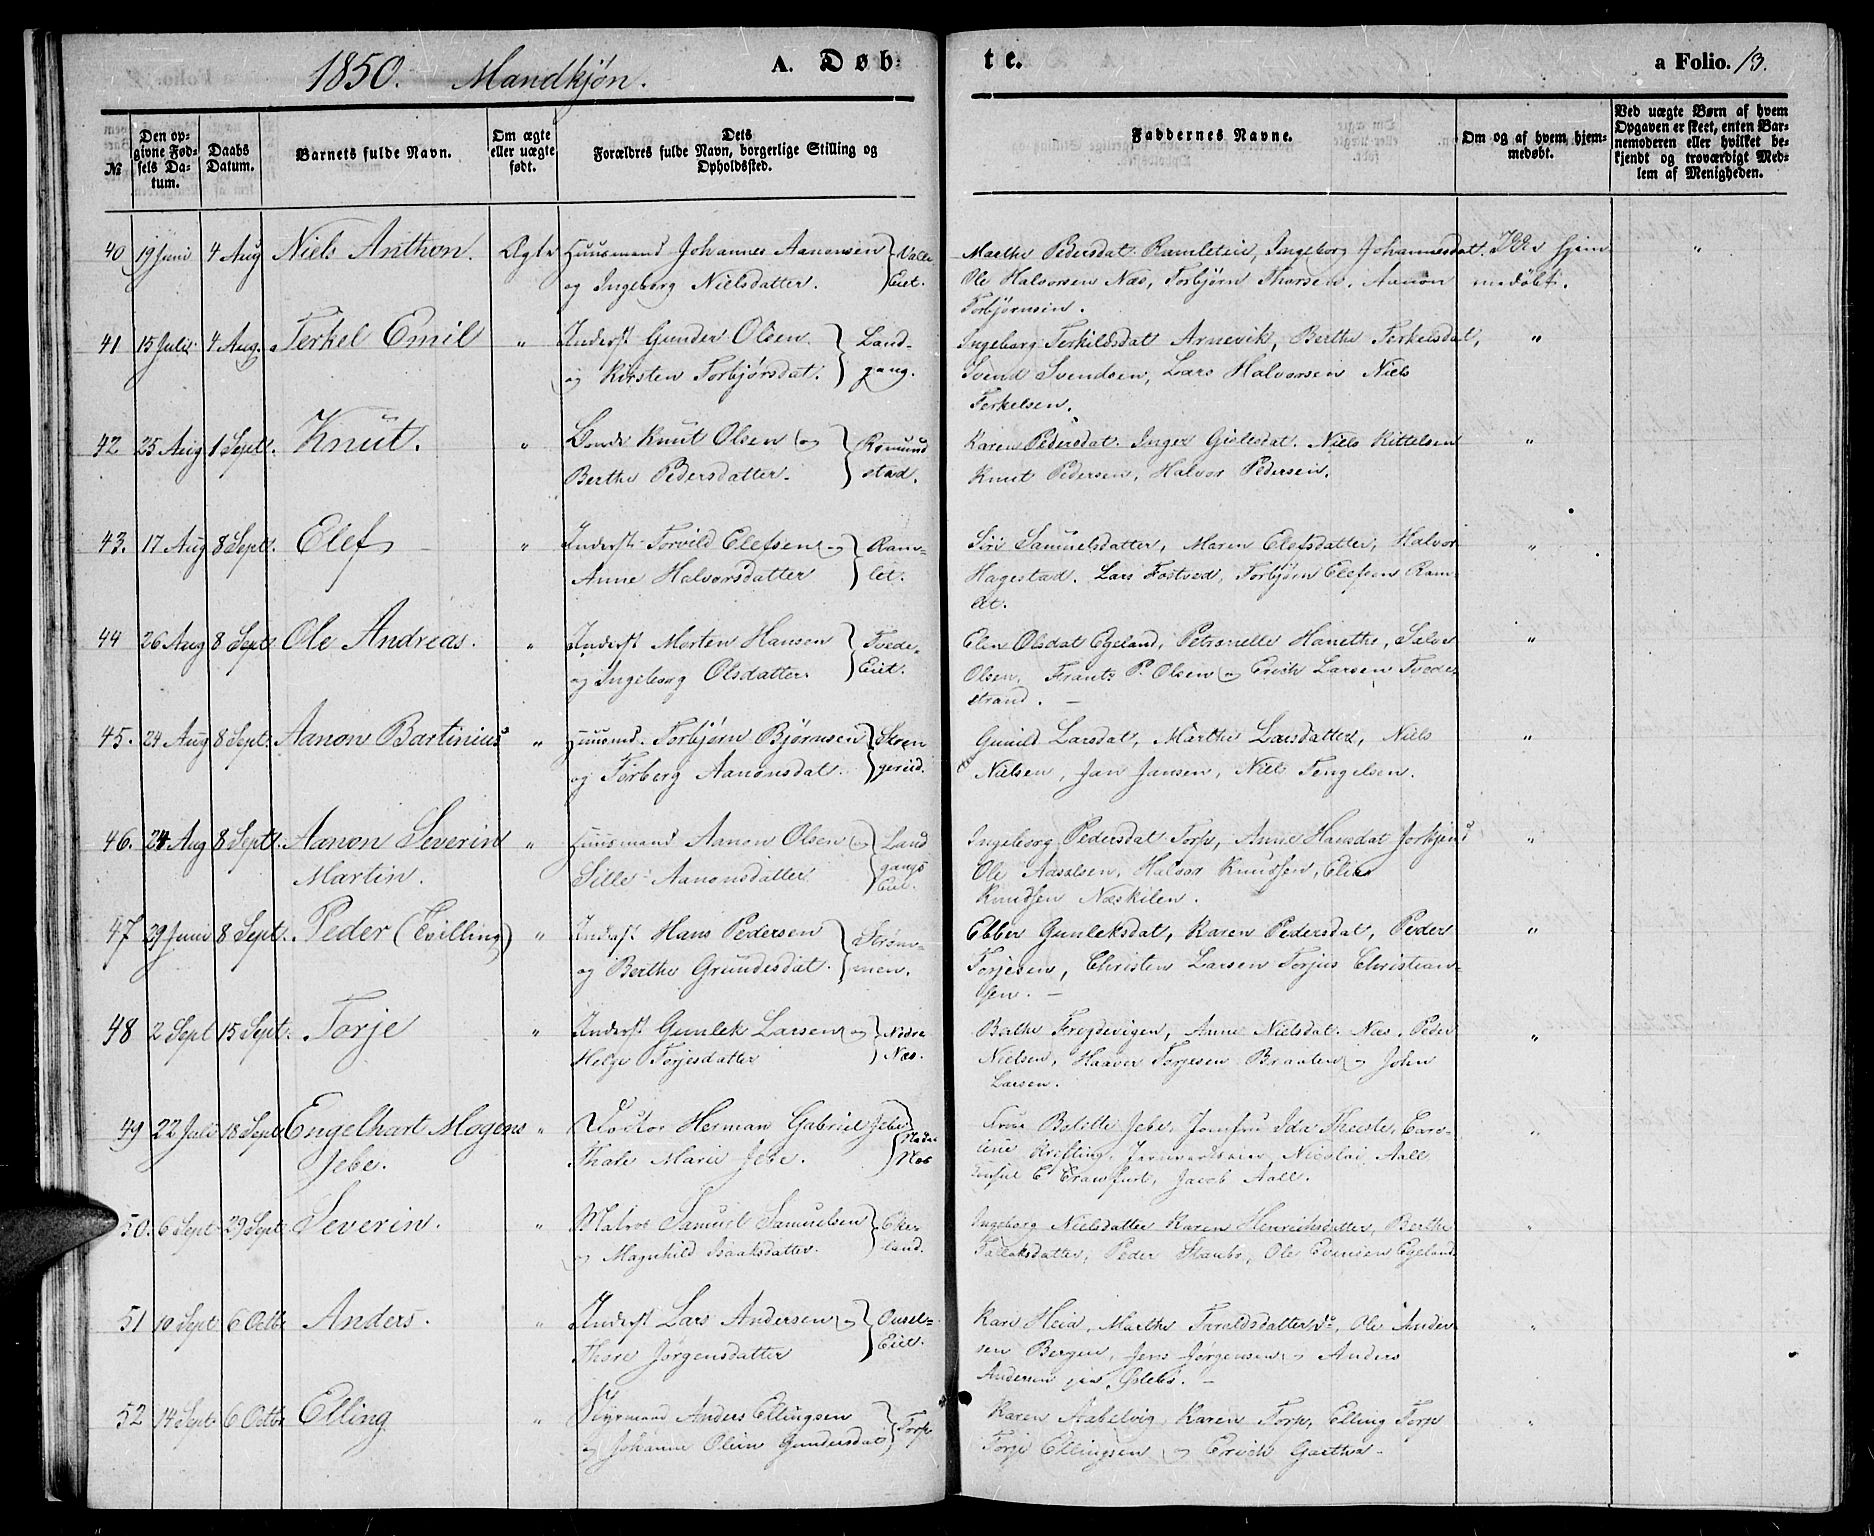 1850. Mandkjøn. A. Døb-
te. a Folio. 13.
№
Den op-
givne Fød-
sels Da-
tum.
Daabs
Datum.
Barnets fulde Navn.
Om ægte
eller uægte
født.
Dets
Forældres fulde Navn, borgerlige Stilling og
Opholdssted.
Faddernes Navne.
Om og af hvem hjem-
medøbt.
Ved uægte Børn af hvem
Opgaven er skeet, enten Bar-
nemoderen eller hvilket be-
kjendt og troværdigt Med-
lem af Menigheden.
40 19 Juni 4 Aug Niels Anthon. Ægte Huusmand Johannes Aanonsen
og Ingeborg Nielsdatter. Eiet.
Marthe Pedersdat Ramleteie, Ingeborg Johannesdat. Ikke hjem
Ole Halvorsen Næs, Torbjørn Thorsen, Aanon medøbt.
Torbjørnsen.
41 15 Juli 4 Aug. Terkel Emil " Inderst Gunder Olsen Land-
og Kirsten Torbjørsdat. gang.
Ingeborg Terkildsdat Arnevik, Berthe Terkelsdat, "
Svend Svendsen, Lars Halvorsen Niels
Terkelsen.
42 25 Aug 1 Sept. Knut. " Bonde Knut Olsen og Romund
Berthe Pedersdatter. stad.
Karen Pedersdat. Inger Gislesdat. Niels Kittelsen "
Knut Pedersen, Halvor Pedersen.
43. 17 Aug 8 Sept. Elef " Inderst Torvild Elefsen og Ram-
Anne Halvorsdatter let.
Siri Samuelsdatter, Maren Elefsdatter, Halvor "
Hagestad. Lars Fostved, Torbjørn Elefsen Ram-
let.
44 26 Aug 8 Sept Ole Andreas. " Inderst Morten Hansen Tvede-
og Ingeborg Olsdatter. Eiet.
Elen Olsdat Egeland, Petronelle Hanethe, Salve "
Olsen, Frants P. Olsen og Erich Larsen Tvede-
strand. —
45. 24 Aug 8 Sept. Aanon Bartinius " Huusmd. Torbjørn Bjørnsen Skren
og Torberg Aanonsdat. gereid.
Gunild Larsdat, Marthe Larsdatter, Niels "
Nielsen, Jan Jansen, Niels Tengelsen.
46. 24 Aug 8 Sept. Aanon Severin " Huusmand Aanon Olsen og Land
Martin. Sille Aanonsdatter gangs
Eiet.
Ingeborg Pedersdat Torp, Anne Hansdat "
Ole Halvor Knudsen,
Knudsen Næskilen.
47 29 Juni 8 Sept. Peder (Tvilling) " Inderst Hans Pedersen Strøm-
og Berthe Grundesdat. men.
Ebber Gunleksdat, Karen Pedersdat, Peder "
Torjesen, Christen Larsen Torjus Christian-
sen. —
48 2 Sept 15 Sept. Torje " Inderst Gunlek Larsen og Nedre
Helge Torjesdatter Næs.
Anne Nielsdat. Næs. Peder "
Nielsen, Haaver Torjesen Braaten og John
Larsen.
49 22 Juli 18 Sept Engelhart Mogens " Doctor Herman Gabriel Jebe
Jebe. Marie Jebe. Næs
Frue Jebe, Jomfru Ida Thesste, Caro- "
line Krefting, Nicolai Aall
Crawfurt, Jacob Aall.
50. 6 Sept 29 Sept Severin. " Matros Samuel Samuelsen Eke-
og Magnhild Isaaksdatter. land.
Ingeborg Nielsdatter Karen Henrichsdatter, Berthe "
Fallaksdatter, Peder Staubø, Ole Evensen Egeland.
51 10 Sept 6 Octb Anders. " Inderst Lars Andersen og Ousel-
Thore Jørgensdatter Eiet.
Kari Heia, Marthe Taraldsdatter do, Ole Ander- "
sen Bergen, Jens Jørgensen og Anders
Andersen
52 14 Sept 6 Octb Elling " Styrmand Anders Ellingsen Torp
og Johanne Olein Gundersdat
Karen Aabelvig, Karen Torp, Elling Torp "
Torje Ellingsen og Erich Garthe.